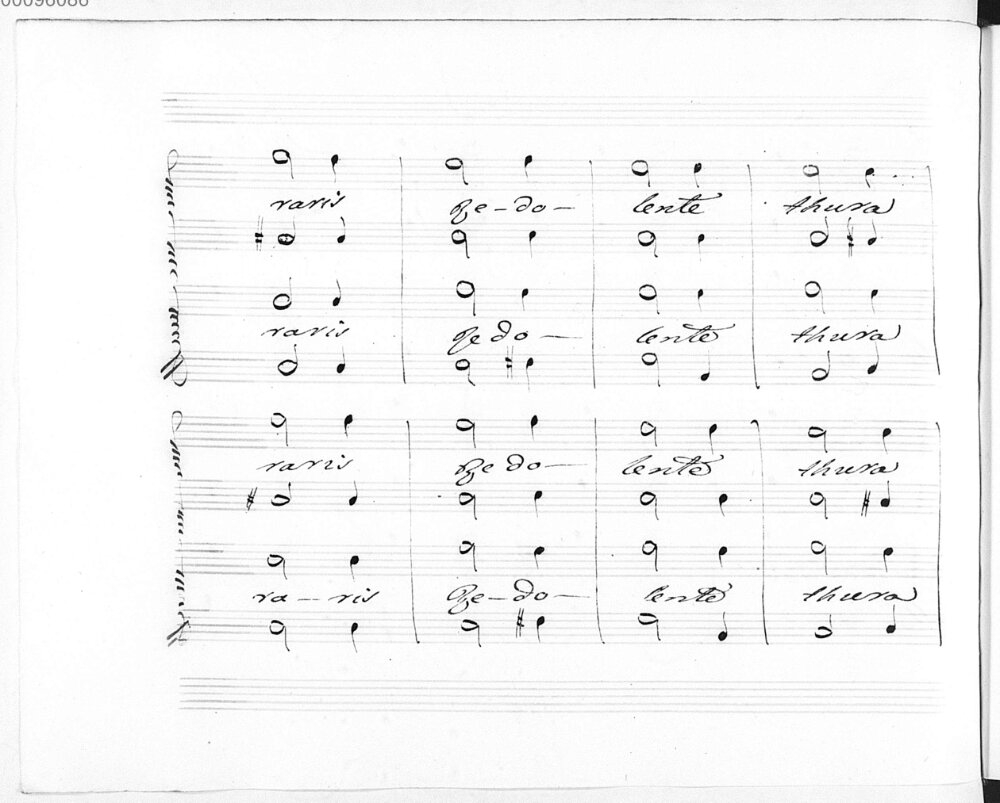 00096086
raris Re-do- lente thura
raris Redo- lente thura
raris Redo- lente thura
ra-ris Re-do- lente thura